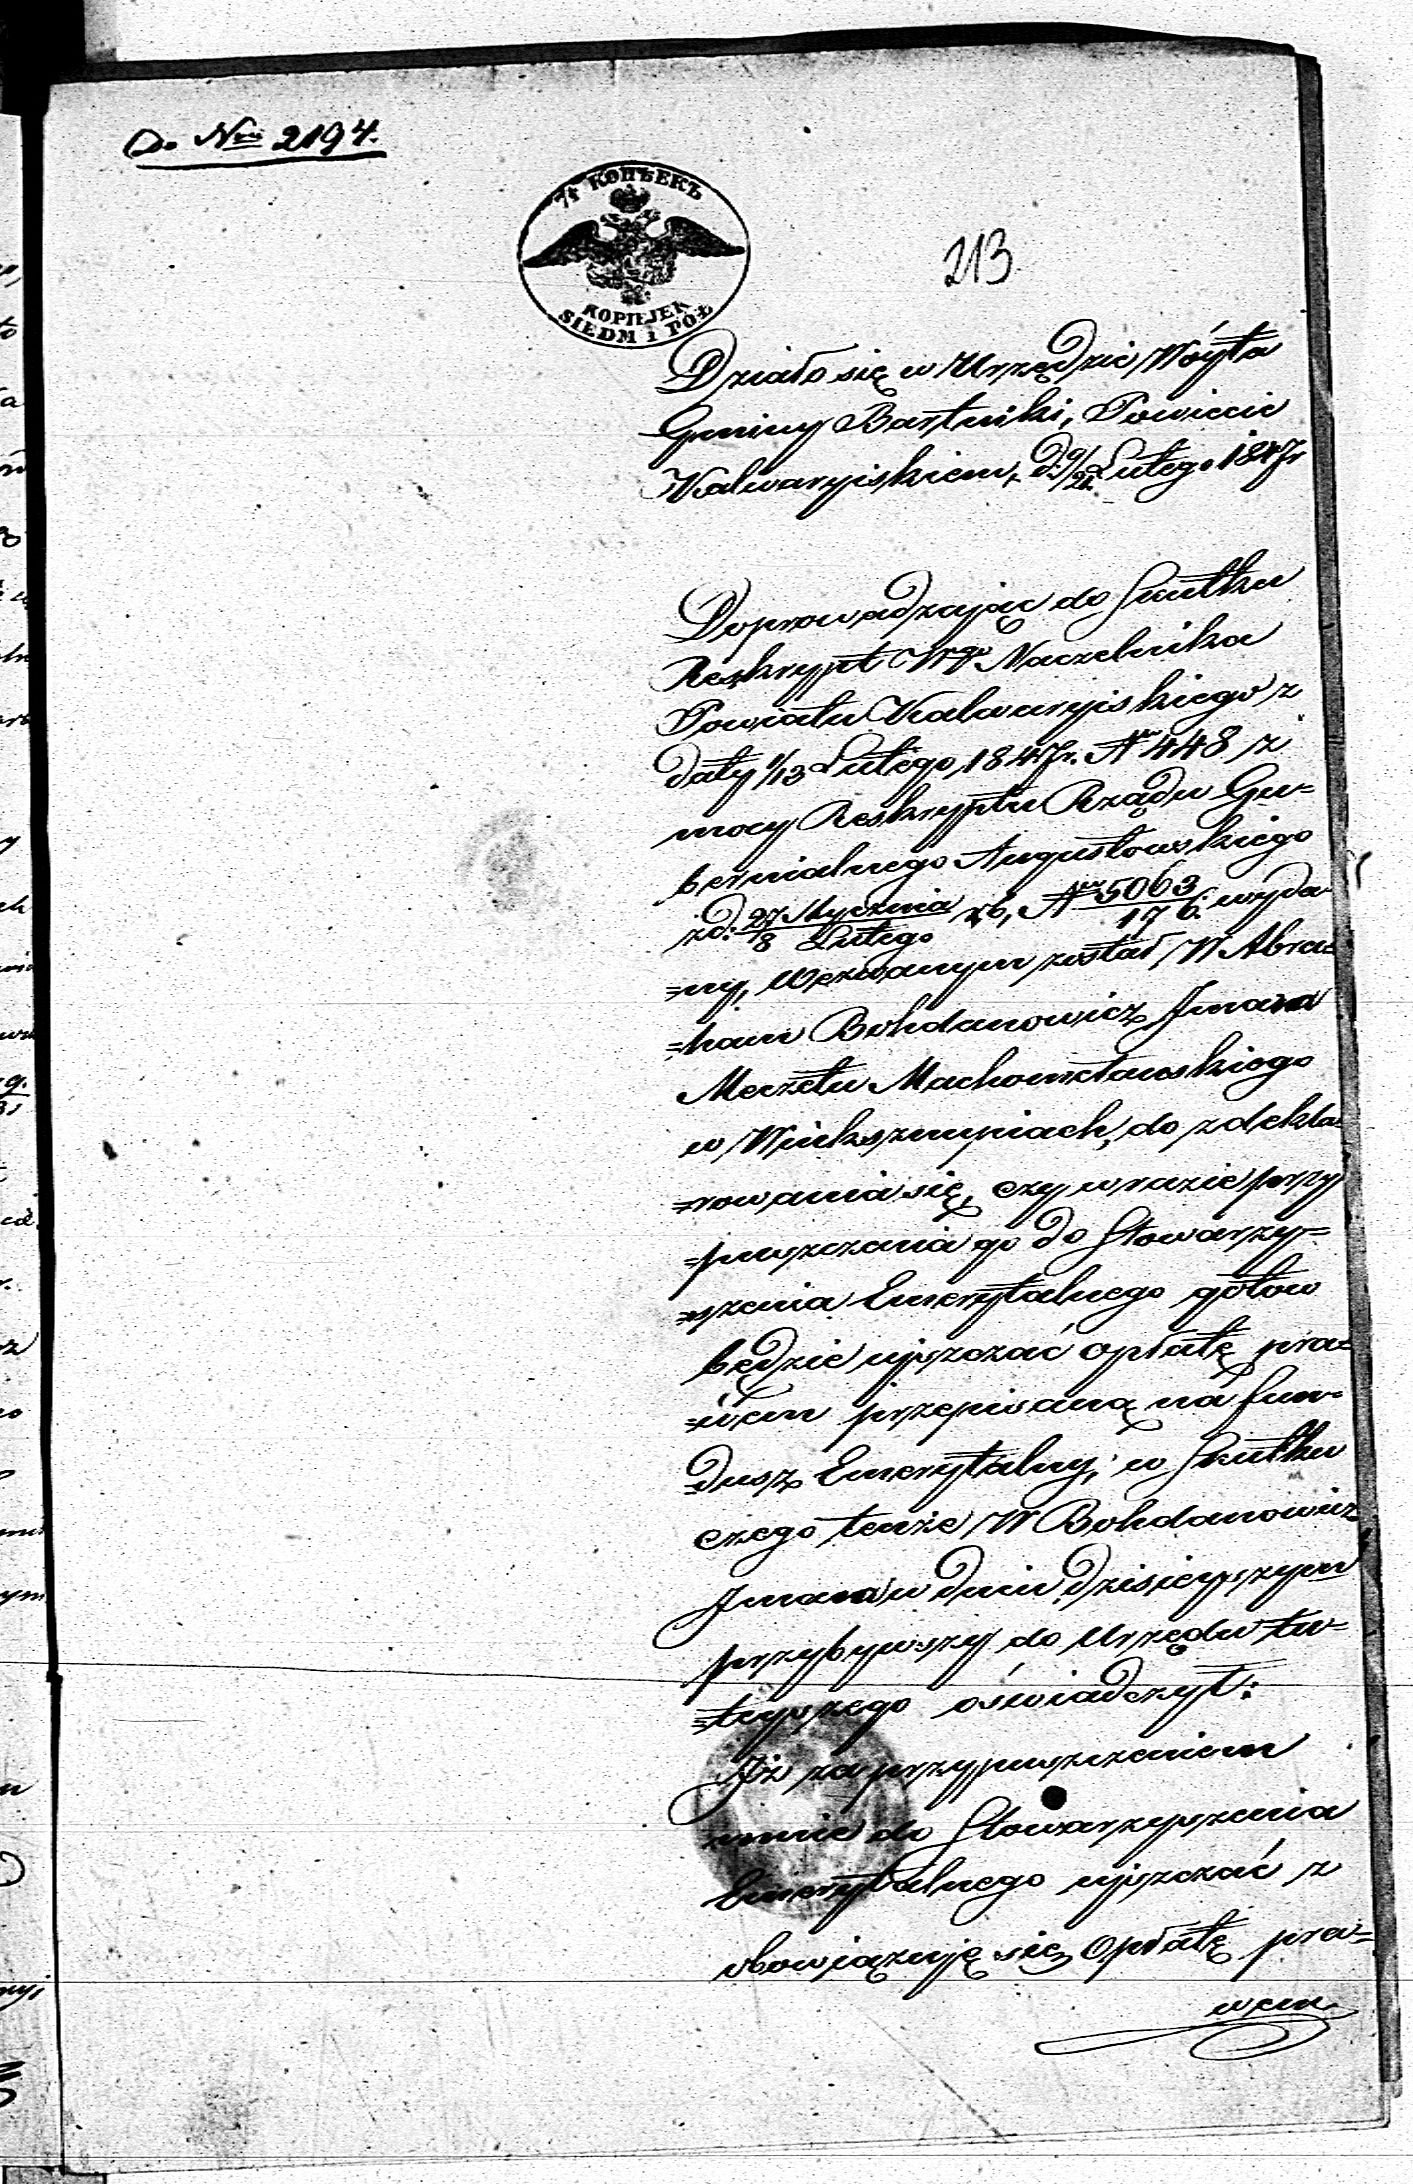 Do Nru 2194.
7½ КОПѢЕКЪ
KOPIEJEK
SIEDM i PÓŁ
213
Działo się w Urzędzie Wóyta
Gminy Bartniki, Powiecie
Kalwaryiskiem, d. 9/21 Lutego 1847r
Doprowadzając do skutku
Reskrypt Wgo Naczelnika
Powiatu Kalwaryiskiego z
daty 1/13 Lutego 1847r. Nr 448 z
mocy Reskryptu Rządu Gu=
bernialnego Augustowskiego
z d: 27 Stycznia/8 Lutego rb, Nr 5063/176. wyda
=ny, Wezwanym został W Abra=
=ham Bohdanowicz Imana
Meczetu Machometańskiego
w Winksznupiach, do zdekla=
=rowania się, czy w razie przy
=puszczenia go do Stowarzy=
=szenia Emerytalnego gotow
będzie uiszczać opłatę pra=
=wem przepisaną na fun=
dusz Emerytalny; w skutku
czego tenże W Bohdanowicz
Imana w dniu dzisieyszym
przybywszy do Urzędu tu=
=teyszego oświadczył:
Iż za przypuszczeniem
mnie do Stowarzyszenia
Emerytalnego uiszczać z
obowiązuję się opłatę pra=
wem